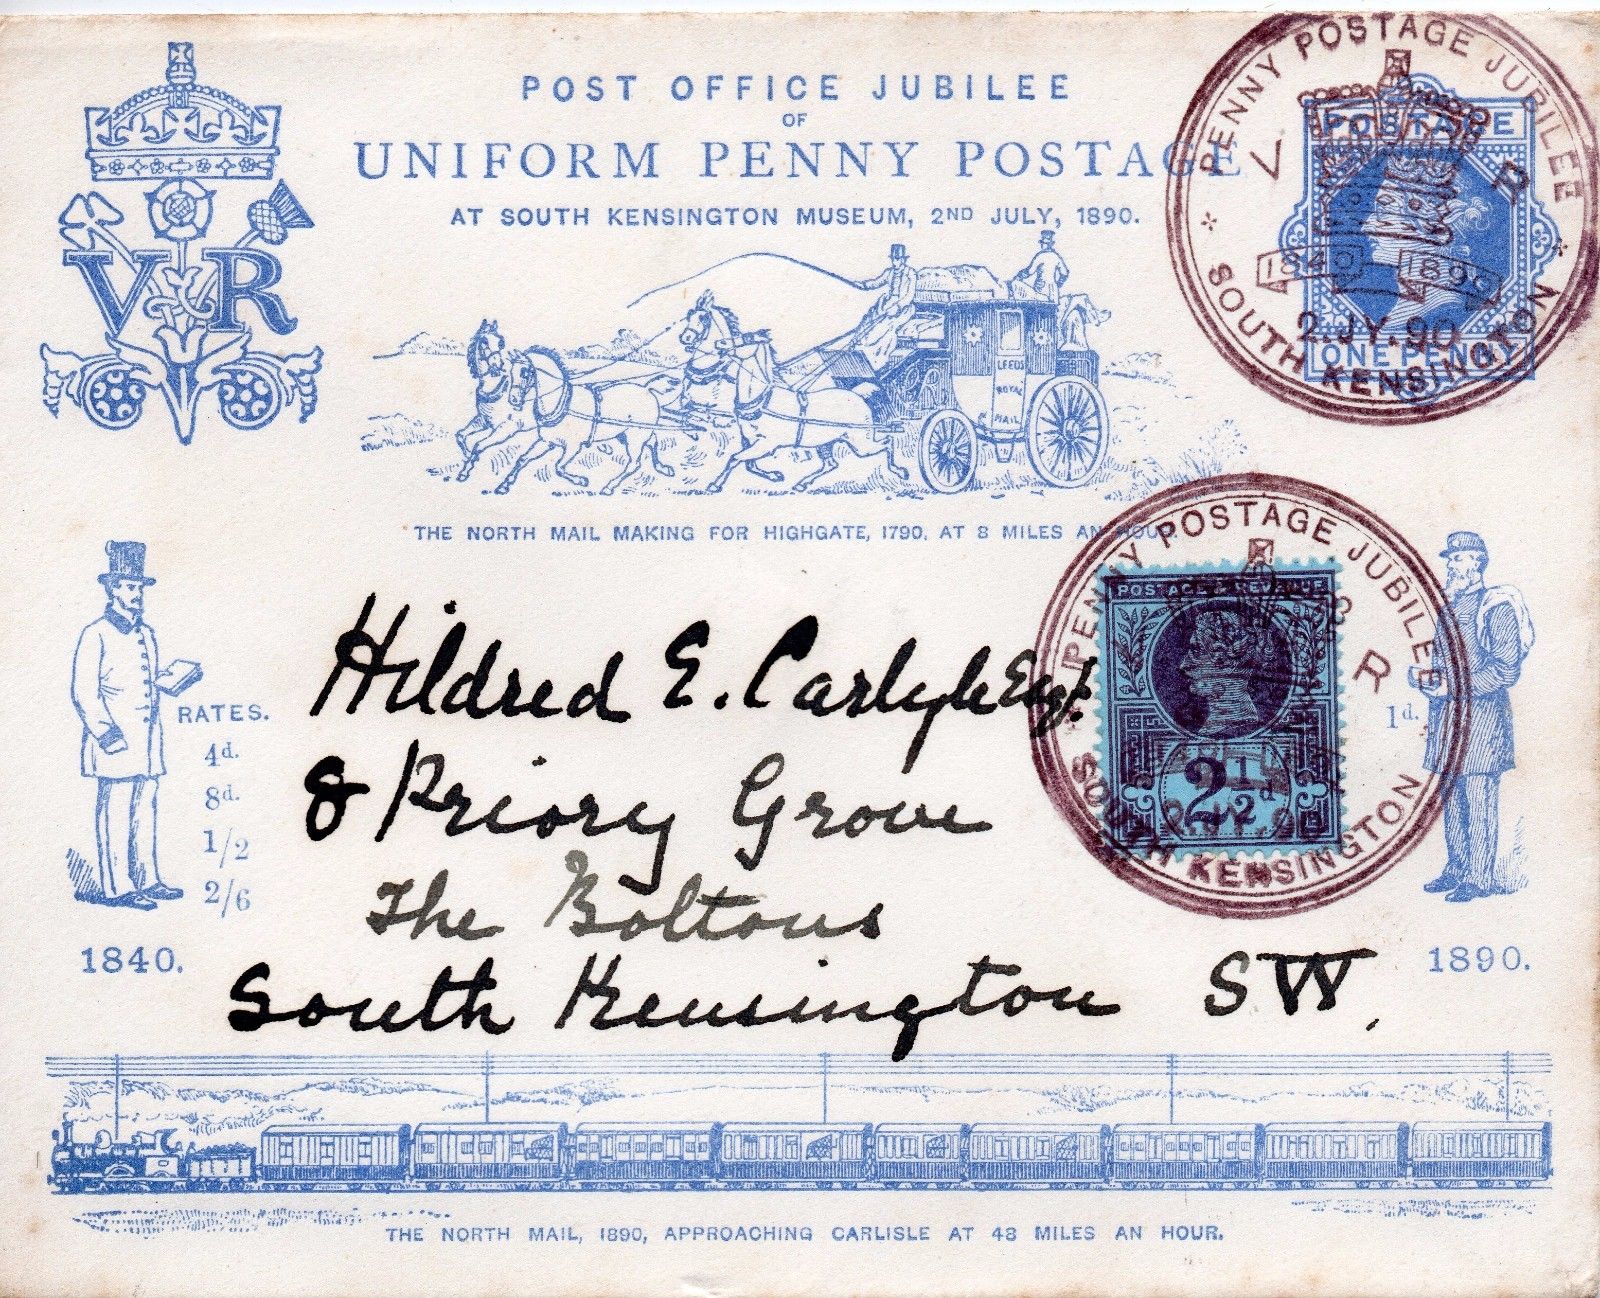 POST OFFICE JUBILEE
OF
UNIFORM PENNY POSTAGE
AT SOUTH KENSINGTON MUSEUM, 2ND JULY, 1890.
PENNY POSTAGE JUBILEE
V R
1840 1890
2.JY.90
SOUTH KENSINGTON
POSTAGE
ONE PENNY
VR
LEEDS
ROYAL
MAIL
THE NORTH MAIL MAKING FOR HIGHGATE, 1790, AT 8 MILES AN HOUR.
PENNY POSTAGE JUBILEE
R
SOUTH KENSINGTON
POSTAGE & REVENUE
2½d
Hildred E. Carlyle Esq.
8 Priory Grove
The Boltons
South Kensington SW.
RATES.
4d.
8d.
1/2
2/6
1840.
1d.
1890.
THE NORTH MAIL, 1890, APPROACHING CARLISLE AT 48 MILES AN HOUR.